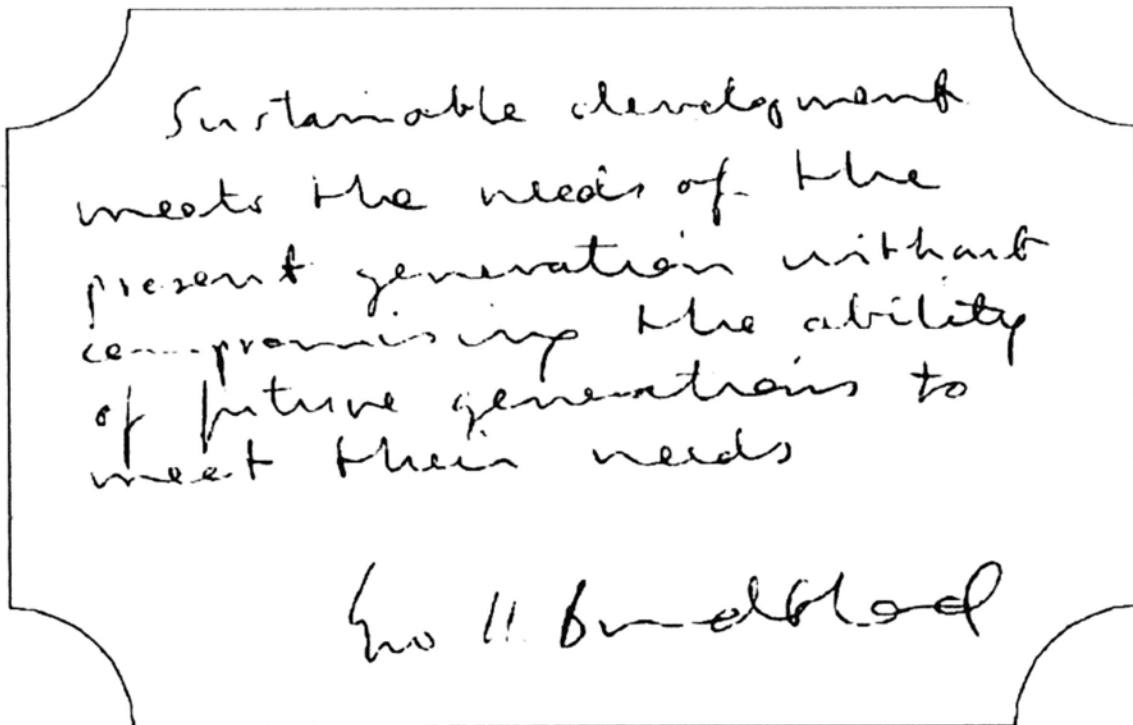 Sustainable development
meets the needs of the
present generation without
compromising the ability
of future generations to
meet their needs
Gro H Brundtland